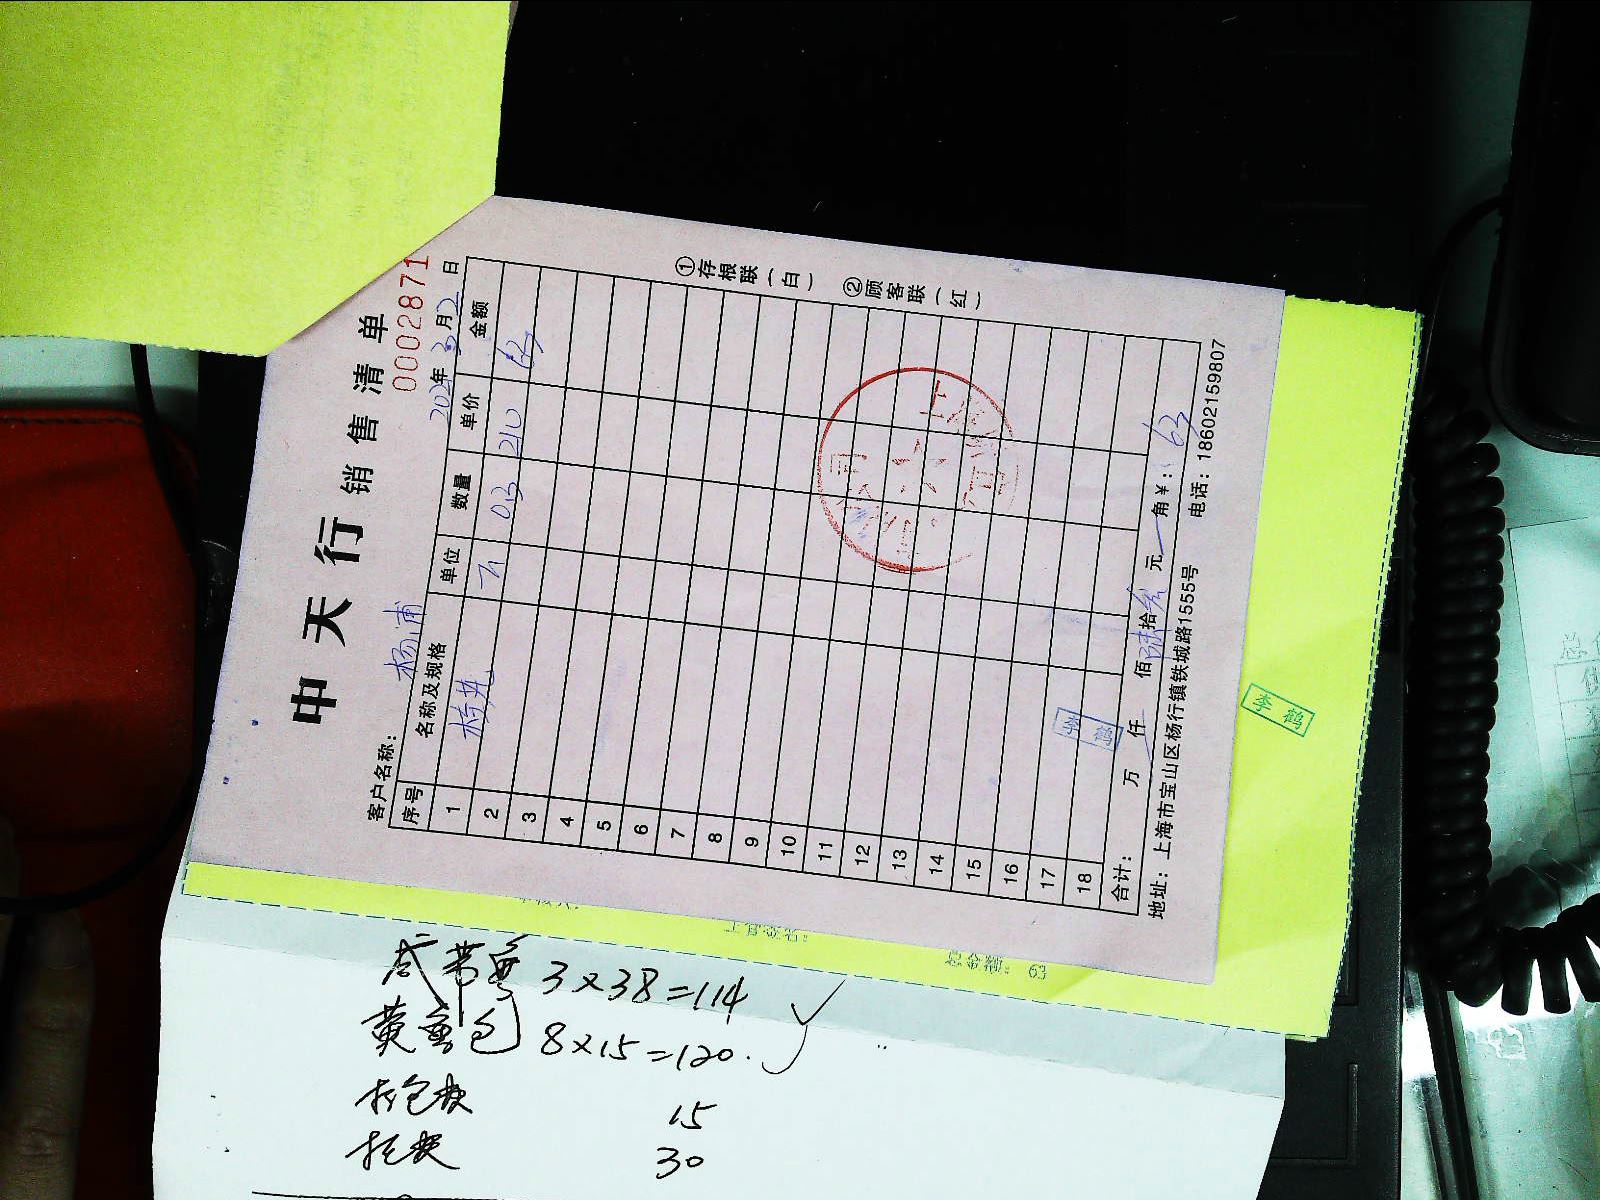 中天行销售清单
0002871
客户名称：杨浦 年3月2日
序号 名称及规格 单位 数量 单价 金额
1
2 03 210 63
3
4
5
6
7
8
9
10
11
12
13
14
15
16
17
18
合计： 万 仟 佰 陆拾叁元 角 ¥：63
地址：上海市宝山区杨行镇铁城路1555号 电话：18602159807
①存根联（白） ②顾客联（红）
李鹤
李鹤
63
3×38=114
黄鱼 8×15=120
15
30